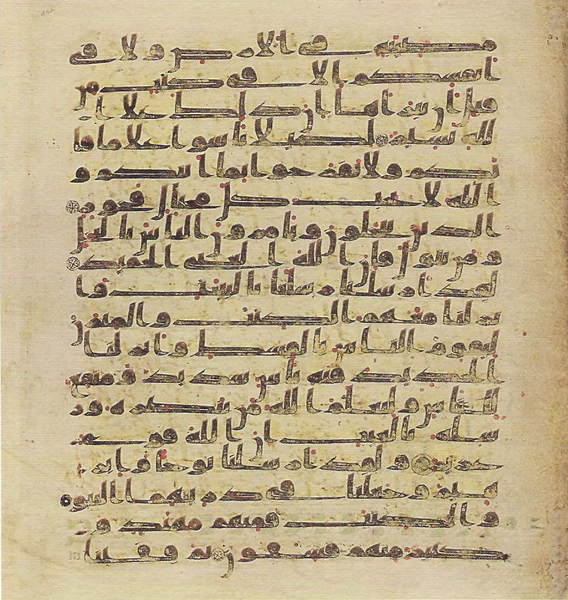 مصيبة في الارض ولا في
انفسكم الا في كتب من
قبل ان نبراها ان ذلك على ا
لله يسير لكيلا تاسوا على ما فا
تكم ولا تفرحوا بما اتيكم و
الله لا يحب كل مختال فخور
الذين يبخلون ويامرون الناس بالبخل
ومن يتول فان الله الغني الحميد
لقد ارسلنا رسلنا بالبينت وا
نزلنا معهم الكتب والميزن
ليقوم الناس بالقسط وانزلنا
الحديد فيه باس شديد ومنفع
للناس وليعلم الله من ينصره ور
سله بالغيب ان الله قوي
عزيز ولقد ارسلنا نوحا وابر
هيم وجعلنا في ذريتهما النبو
ة والكتب فمنهم مهتد و
كثير منهم فسقون ثم قفينا